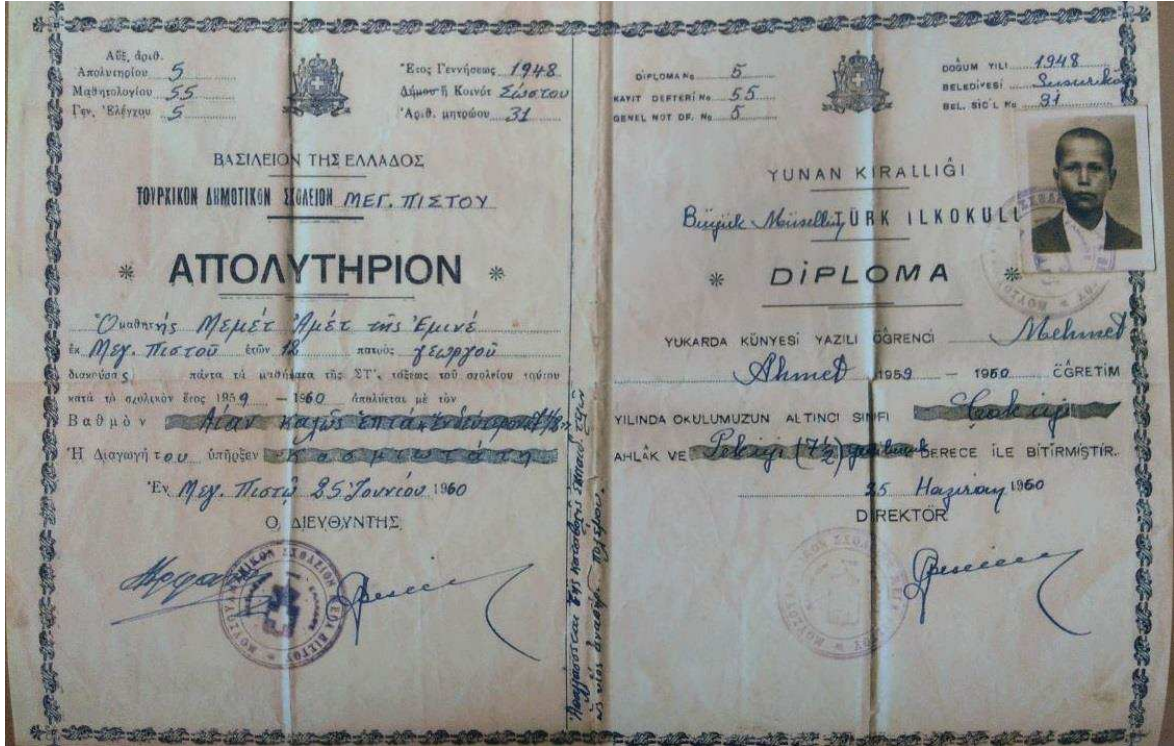 Αὔξ. ἀριθ.
Ἀπολυτηρίου 5
Μαθητολογίου 55
Γεν. Ἐλέγχου 5
Ἔτος Γεννήσεως 1948
Δήμου ἢ Κοινότ Σώστου
Ἀριθ. μητρώου 31
ΒΑΣΙΛΕΙΟΝ ΤΗΣ ΕΛΛΑΔΟΣ
ΤΟΥΡΚΙΚΟΝ ΔΗΜΟΤΙΚΟΝ ΣΧΟΛΕΙΟΝ ΜΕΓ. ΠΙΣΤΟΥ
* ΑΠΟΛΥΤΗΡΙΟΝ *
Ὁ μαθητής Μεμέτ Ἀμέτ τῆς Ἐμινέ
ἐκ Μεγ. Πιστοῦ ἐτῶν 12 πατρὸς γεωργοῦ
διακούσας πάντα τὰ μαθήματα τῆς ΣΤ΄. τάξεως τοῦ σχολείου τούτου
κατὰ τὸ σχολικὸν ἔτος 1959 — 1960 ἀπολύεται μὲ τὸν
Βαθμὸν Λίαν καλῶς ἑπτὰ
Ἡ Διαγωγή του ὑπῆρξεν κοσμιωτάτη
Ἐν Μεγ. Πιστῷ 25 Ἰουνίου 1960
Ο ΔΙΕΥΘΥΝΤΗΣ
DİPLOMA No 5
KAYIT DEFTERİ No 55
GENEL NOT DF. No 5
DOĞUM YILI 1948
BELEDİYESİ
BEL. SİCİL No 31
YUNAN KIRALLIĞI
Büyük Müsellim TÜRK İLKOKULU
* DİPLOMA *
YUKARDA KÜNYESİ YAZILI ÖĞRENCİ Mehmed
Ahmed 1959 — 1960 ÖĞRETİM
YILINDA OKULUMUZUN ALTINCI SINIFI Çok iyi
AHLÂK VE Pek iyi (7½) DERECE İLE BİTİRMİŞTİR.
25 Haziran 1960
DİREKTÖR